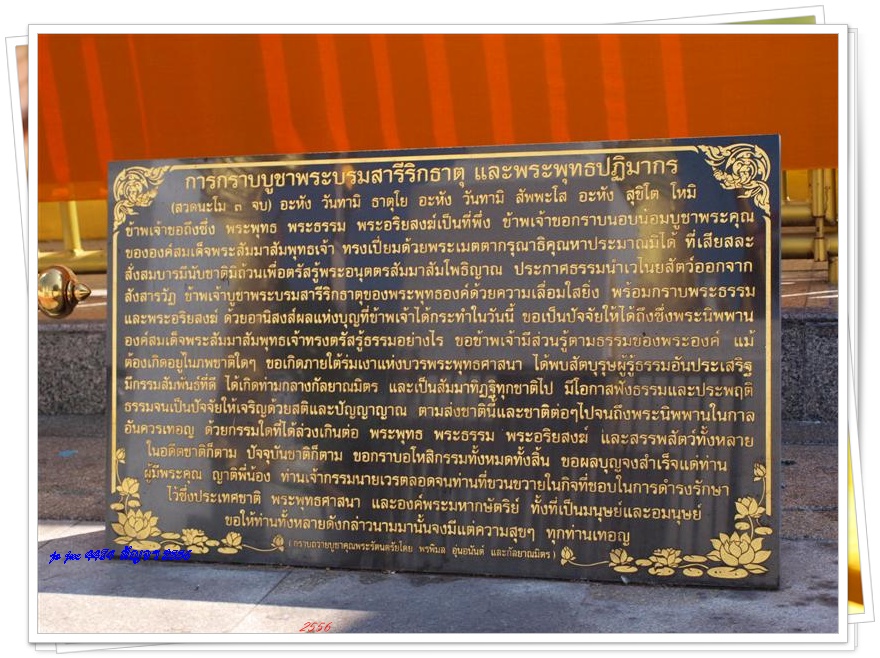 การกราบบูชาพระบรมสารีริกธาตุ และพระพุทธปฏิมากร
(สวดนะโม ๓ จบ) อะหัง วันทามิ ธาตุโย อะหัง วันทามิ สัพพะโส อะหัง สุขิโต โหมิ
ข้าพเจ้าขอถึงซึ่ง พระพุทธ พระธรรม พระอริยสงฆ์เป็นที่พึ่ง ข้าพเจ้าขอกราบนอบน้อมบูชาพระคุณ
ขององค์สมเด็จพระสัมมาสัมพุทธเจ้า ทรงเปี่ยมด้วยพระเมตตากรุณาธิคุณหาประมาณมิได้ ที่เสียสละ
สั่งสมบารมีนับชาติมิถ้วนเพื่อตรัสรู้พระอนุตตรสัมมาสัมโพธิญาณ ประกาศธรรมนำเวไนยสัตว์ออกจาก
สังสารวัฏ ข้าพเจ้าบูชาพระบรมสารีริกธาตุของพระพุทธองค์ด้วยความเลื่อมใสยิ่ง พร้อมกราบพระธรรม
และพระอริยสงฆ์ ด้วยอานิสงส์ผลแห่งบุญที่ข้าพเจ้าได้กระทำในวันนี้ ขอเป็นปัจจัยให้ได้ถึงซึ่งพระนิพพาน
องค์สมเด็จพระสัมมาสัมพุทธเจ้าทรงตรัสรู้ธรรมอย่างไร ขอข้าพเจ้ามีส่วนรู้ตามธรรมของพระองค์ แม้
ต้องเกิดอยู่ในภพชาติใดๆ ขอเกิดภายใต้ร่มเงาแห่งบวรพระพุทธศาสนา ได้พบสัตบุรุษผู้รู้ธรรมอันประเสริฐ
มีกรรมสัมพันธ์ที่ดี ได้เกิดท่ามกลางกัลยาณมิตร และเป็นสัมมาทิฏฐิทุกชาติไป มีโอกาสฟังธรรมและประพฤติ
ธรรมจนเป็นปัจจัยให้เจริญด้วยสติและปัญญาญาณ ตามส่งชาตินี้และชาติต่อๆไปจนถึงพระนิพพานในกาล
อันควรเทอญ ด้วยกรรมใดที่ได้ล่วงเกินต่อ พระพุทธ พระธรรม พระอริยสงฆ์ และสรรพสัตว์ทั้งหลาย
ในอดีตชาติก็ตาม ปัจจุบันชาติก็ตาม ขอกราบอโหสิกรรมทั้งหมดทั้งสิ้น ขอผลบุญจงสำเร็จแด่ท่าน
ผู้มีพระคุณ ญาติพี่น้อง ท่านเจ้ากรรมนายเวรตลอดจนท่านที่ขวนขวายในกิจที่ชอบในการดำรงรักษา
ไว้ซึ่งประเทศชาติ พระพุทธศาสนา และองค์พระมหากษัตริย์ ทั้งที่เป็นมนุษย์และอมนุษย์
ขอให้ท่านทั้งหลายดังกล่าวนามมานั้นจงมีแต่ความสุขๆ ทุกท่านเทอญ
(กราบถวายบูชาคุณพระรัตนตรัยโดย พรพิมล อุ่นอนันต์ และกัลยาณมิตร)
2556